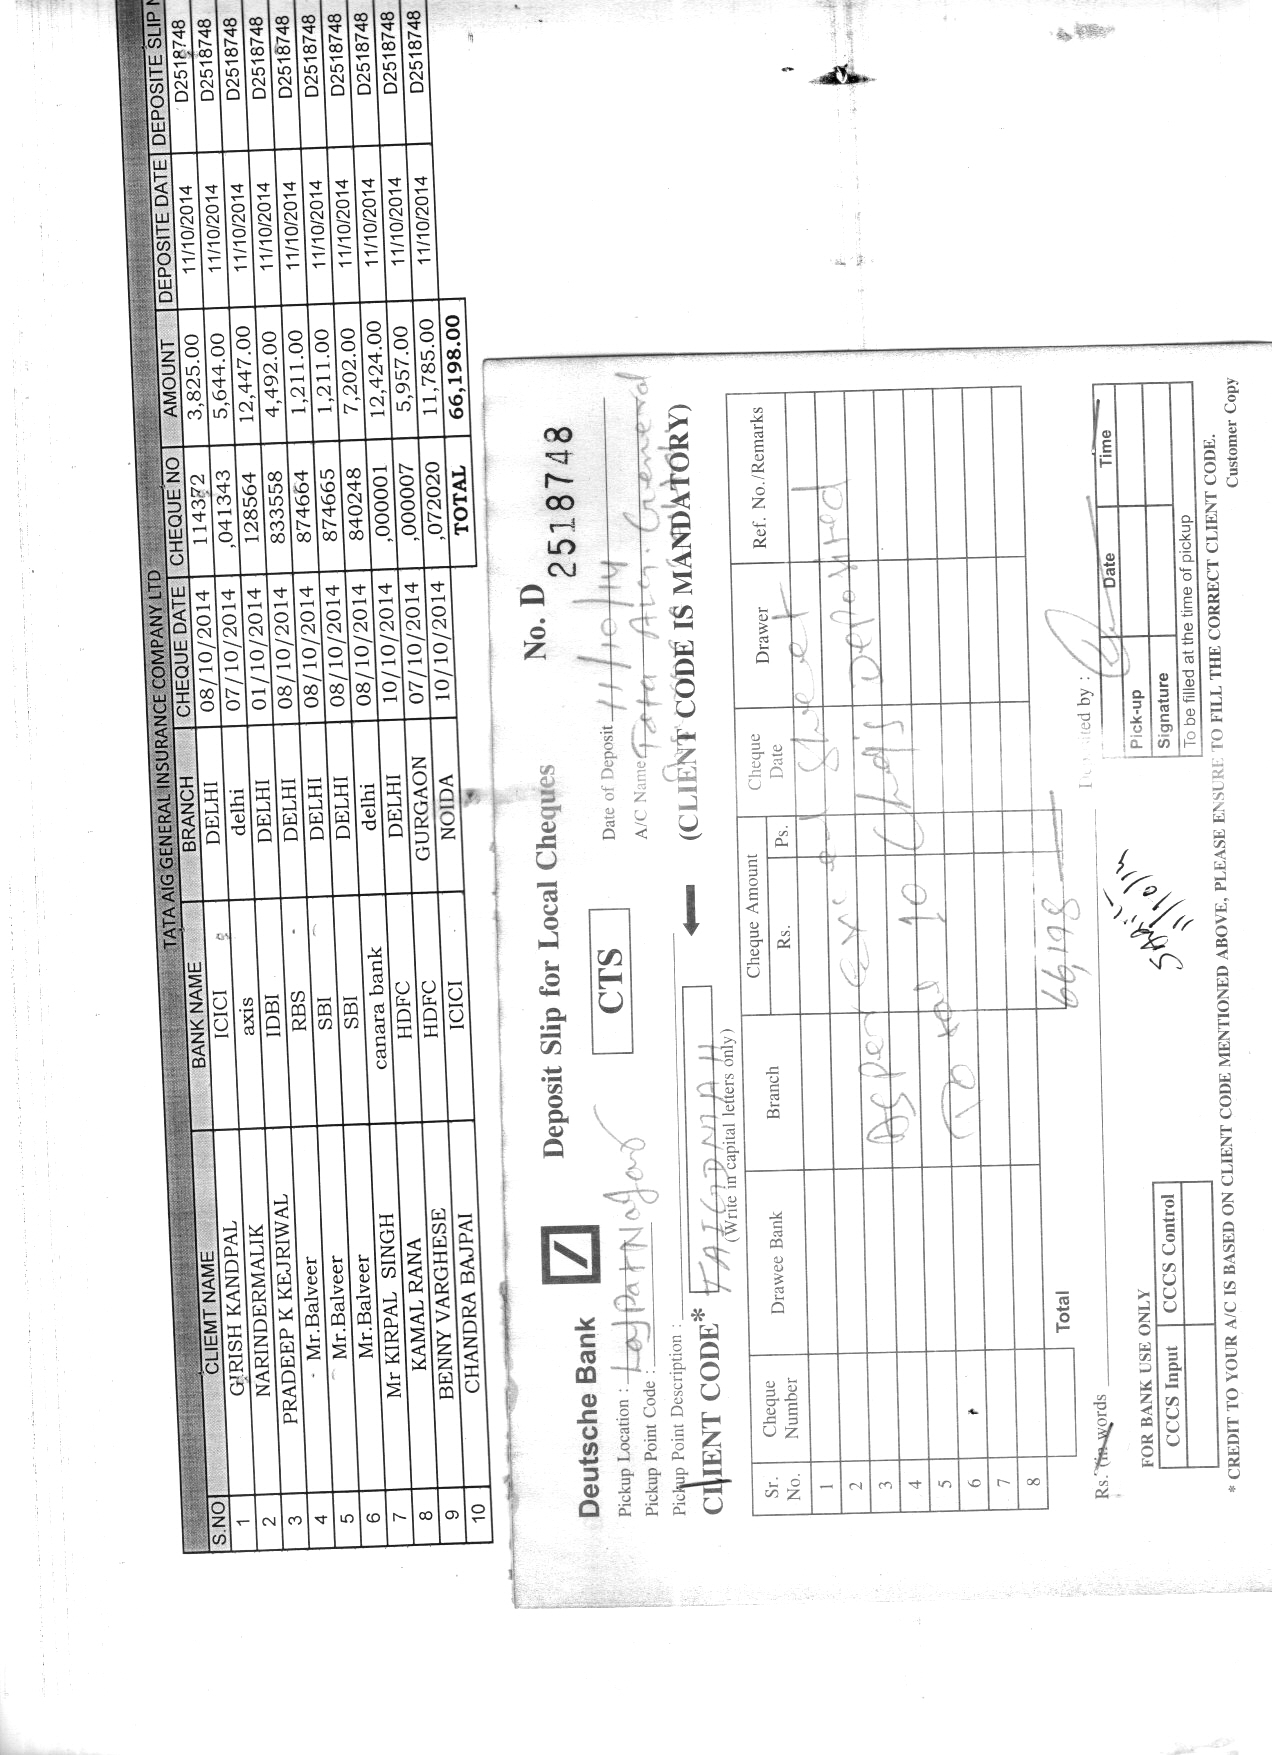 TATA AIG GENERAL INSURANCE COMPANY LTD
S.NO CLIEMT NAME BANK NAME BRANCH CHEQUE DATE CHEQUE NO AMOUNT DEPOSITE DATE DEPOSITE SLIP
1 GIRISH KANDPAL ICICI DELHI 08/10/2014 114372 3,825.00 11/10/2014 D2518748
2 NARINDERMALIK axis delhi 07/10/2014 ,041343 5,644.00 11/10/2014 D2518748
3 PRADEEP K KEJRIWAL IDBI DELHI 01/10/2014 128564 12,447.00 11/10/2014 D2518748
4 Mr.Balveer RBS DELHI 08/10/2014 833558 4,492.00 11/10/2014 D2518748
5 Mr.Balveer SBI DELHI 08/10/2014 874664 1,211.00 11/10/2014 D2518748
6 Mr.Balveer SBI DELHI 08/10/2014 874665 1,211.00 11/10/2014 D2518748
7 Mr KIRPAL SINGH canara bank delhi 08/10/2014 840248 7,202.00 11/10/2014 D2518748
8 KAMAL RANA HDFC DELHI 10/10/2014 ,000001 12,424.00 11/10/2014 D2518748
9 BENNY VARGHESE HDFC GURGAON 07/10/2014 ,000007 5,957.00 11/10/2014 D2518748
10 CHANDRA BAJPAI ICICI NOIDA 10/10/2014 ,072020 11,785.00 11/10/2014 D2518748
TOTAL 66,198.00
Deutsche Bank Deposit Slip for Local Cheques No. D 2518748
Pickup Location : Lajpat Nagar CTS Date of Deposit 11/10/14
Pickup Point Code : A/C Name Tata AIG General
Pickup Point Description :
CLIENT CODE* TAIGDMAH (CLIENT CODE IS MANDATORY)
(Write in capital letters only)
Sr. No. Cheque Number Drawee Bank Branch Cheque Amount Rs. Ps. Cheque Date Drawer Ref. No./Remarks
1
2
3 As per excel Sheet
4
5 Total 10 Chq's Deposited
6
7
8
Total 66,198
Rs. (in words
FOR BANK USE ONLY
CCCS Input CCCS Control
11/10/14
Pick-up Date Time
Signature
To be filled at the time of pickup
* CREDIT TO YOUR A/C IS BASED ON CLIENT CODE MENTIONED ABOVE, PLEASE ENSURE TO FILL THE CORRECT CLIENT CODE.
Customer Copy